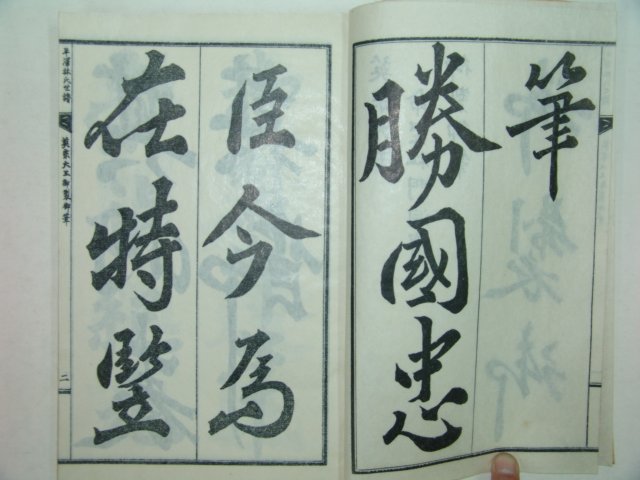 筆
勝國忠
臣今爲
在特竪
平澤林氏世譜
英宗大王御製御筆
二